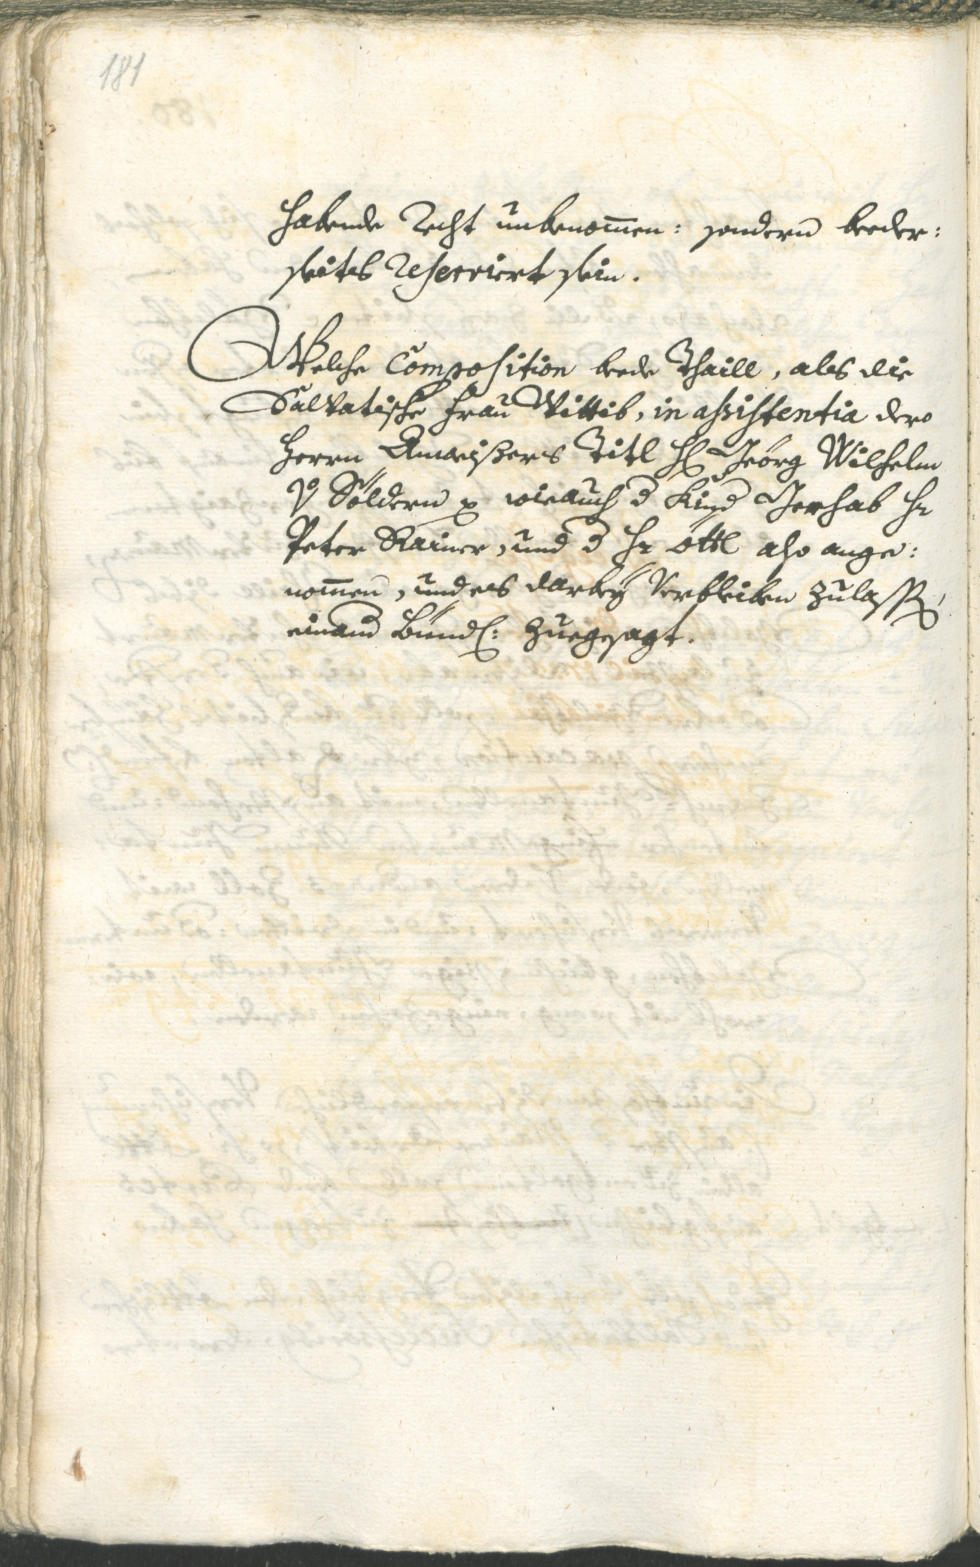 181
habende Recht unbenom̄en: sondern beeder:
seits Reserviert sein.
Welche Composition beede Thaill, als die
Salvatische Frau Wittib, in assistentia dero
Herrn Anweisers Titl H: Geörg Wilhelm
v Söldern wie auch d Kind Gerhab Hr
Peter Rainer, und d Hr Öttl also ange:
nom̄en, und es darbeÿ Verbleiben Zulassen,
einand Bündl: Zuegesagt.